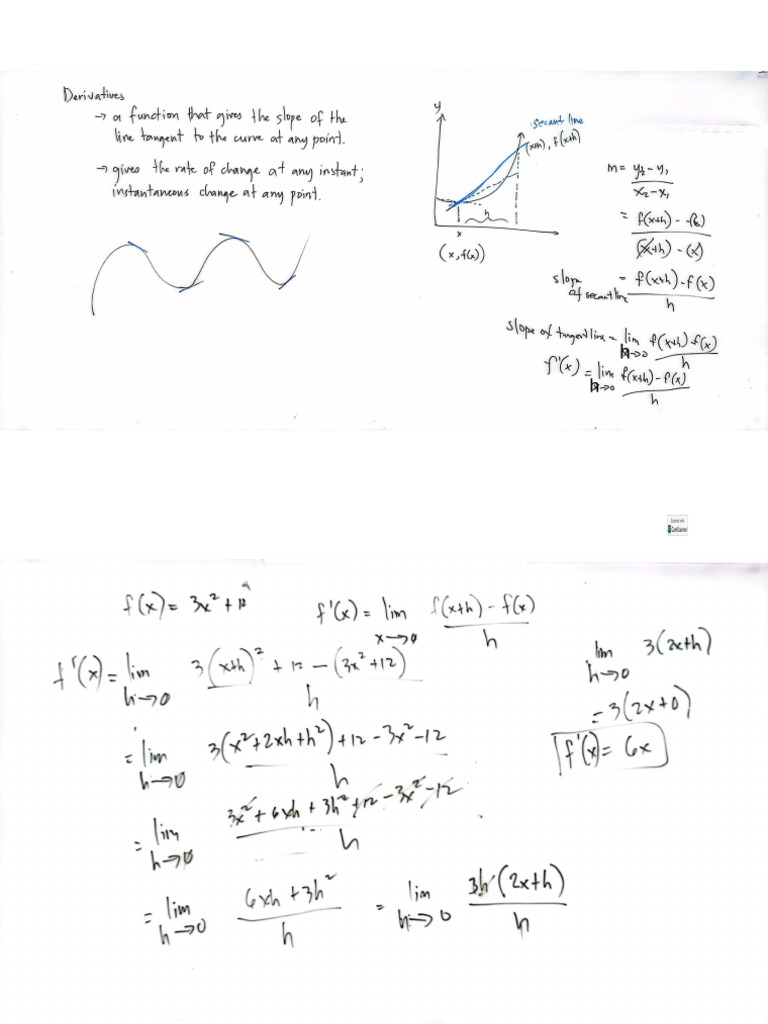 Derivatives
→ a function that gives the slope of the
line tangent to the curve at any point.
→ gives the rate of change at any instant;
instantaneous change at any point.
y
secant line
(x+h), f(x+h)
h
x
(x, f(x))
m = y₂ - y₁
x₂ - x₁
= f(x+h) -
(x+h) - (x)
slope of secant line = f(x+h) - f(x)
h
slope of tangent line = lim f(x+h) - f(x)
h→0 h
f'(x) = lim f(x+h) - f(x)
h→0 h
Scanned with
CamScanner
f(x) = 3x² + 12
f'(x) = lim f(x+h) - f(x)
x→0 h
f'(x) = lim 3(x+h)² + 12 - (3x² + 12)
h→0 h
= lim 3(x² + 2xh + h²) + 12 - 3x² - 12
h→0 h
= lim 3x² + 6xh + 3h² + 12 - 3x² - 12
h→0 h
= lim 6xh + 3h²
h→0 h
= lim 3h(2x+h)
h→0 h
lim 3(2x+h)
h→0
= 3(2x+0)
f'(x) = 6x